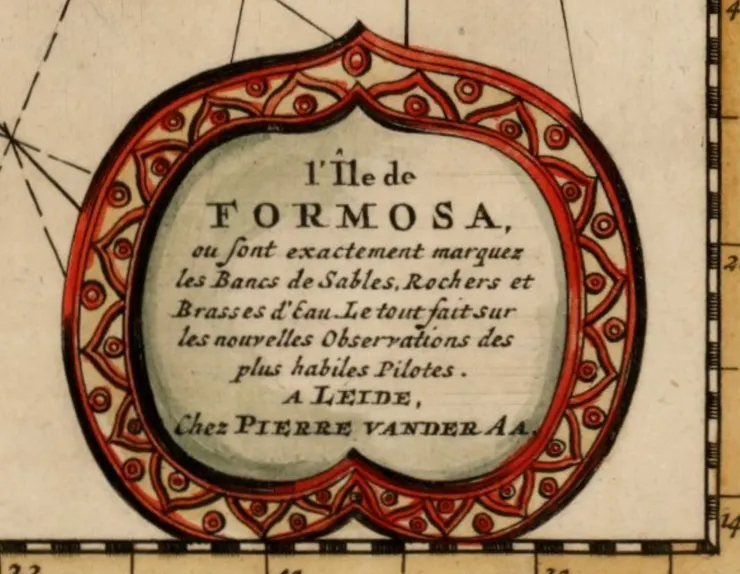 l'Île de
FORMOSA,
ou ſont exactement marquez
les Bancs de Sables, Rochers et
Brasses d'Eau. Le tout fait sur
les nouvelles Observations des
plus habiles Pilotes.
A LEIDE,
Chez PIERRE VANDER AA.